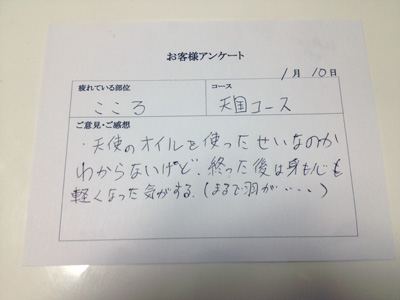 お客様アンケート
1月10日
疲れている部位
コース
こころ
天国コース
ご意見・ご感想
・天使のオイルを使ったせいなのか
わからないけど、終った後は身も心も
軽くなった気がする。(まるで羽が・・・・)